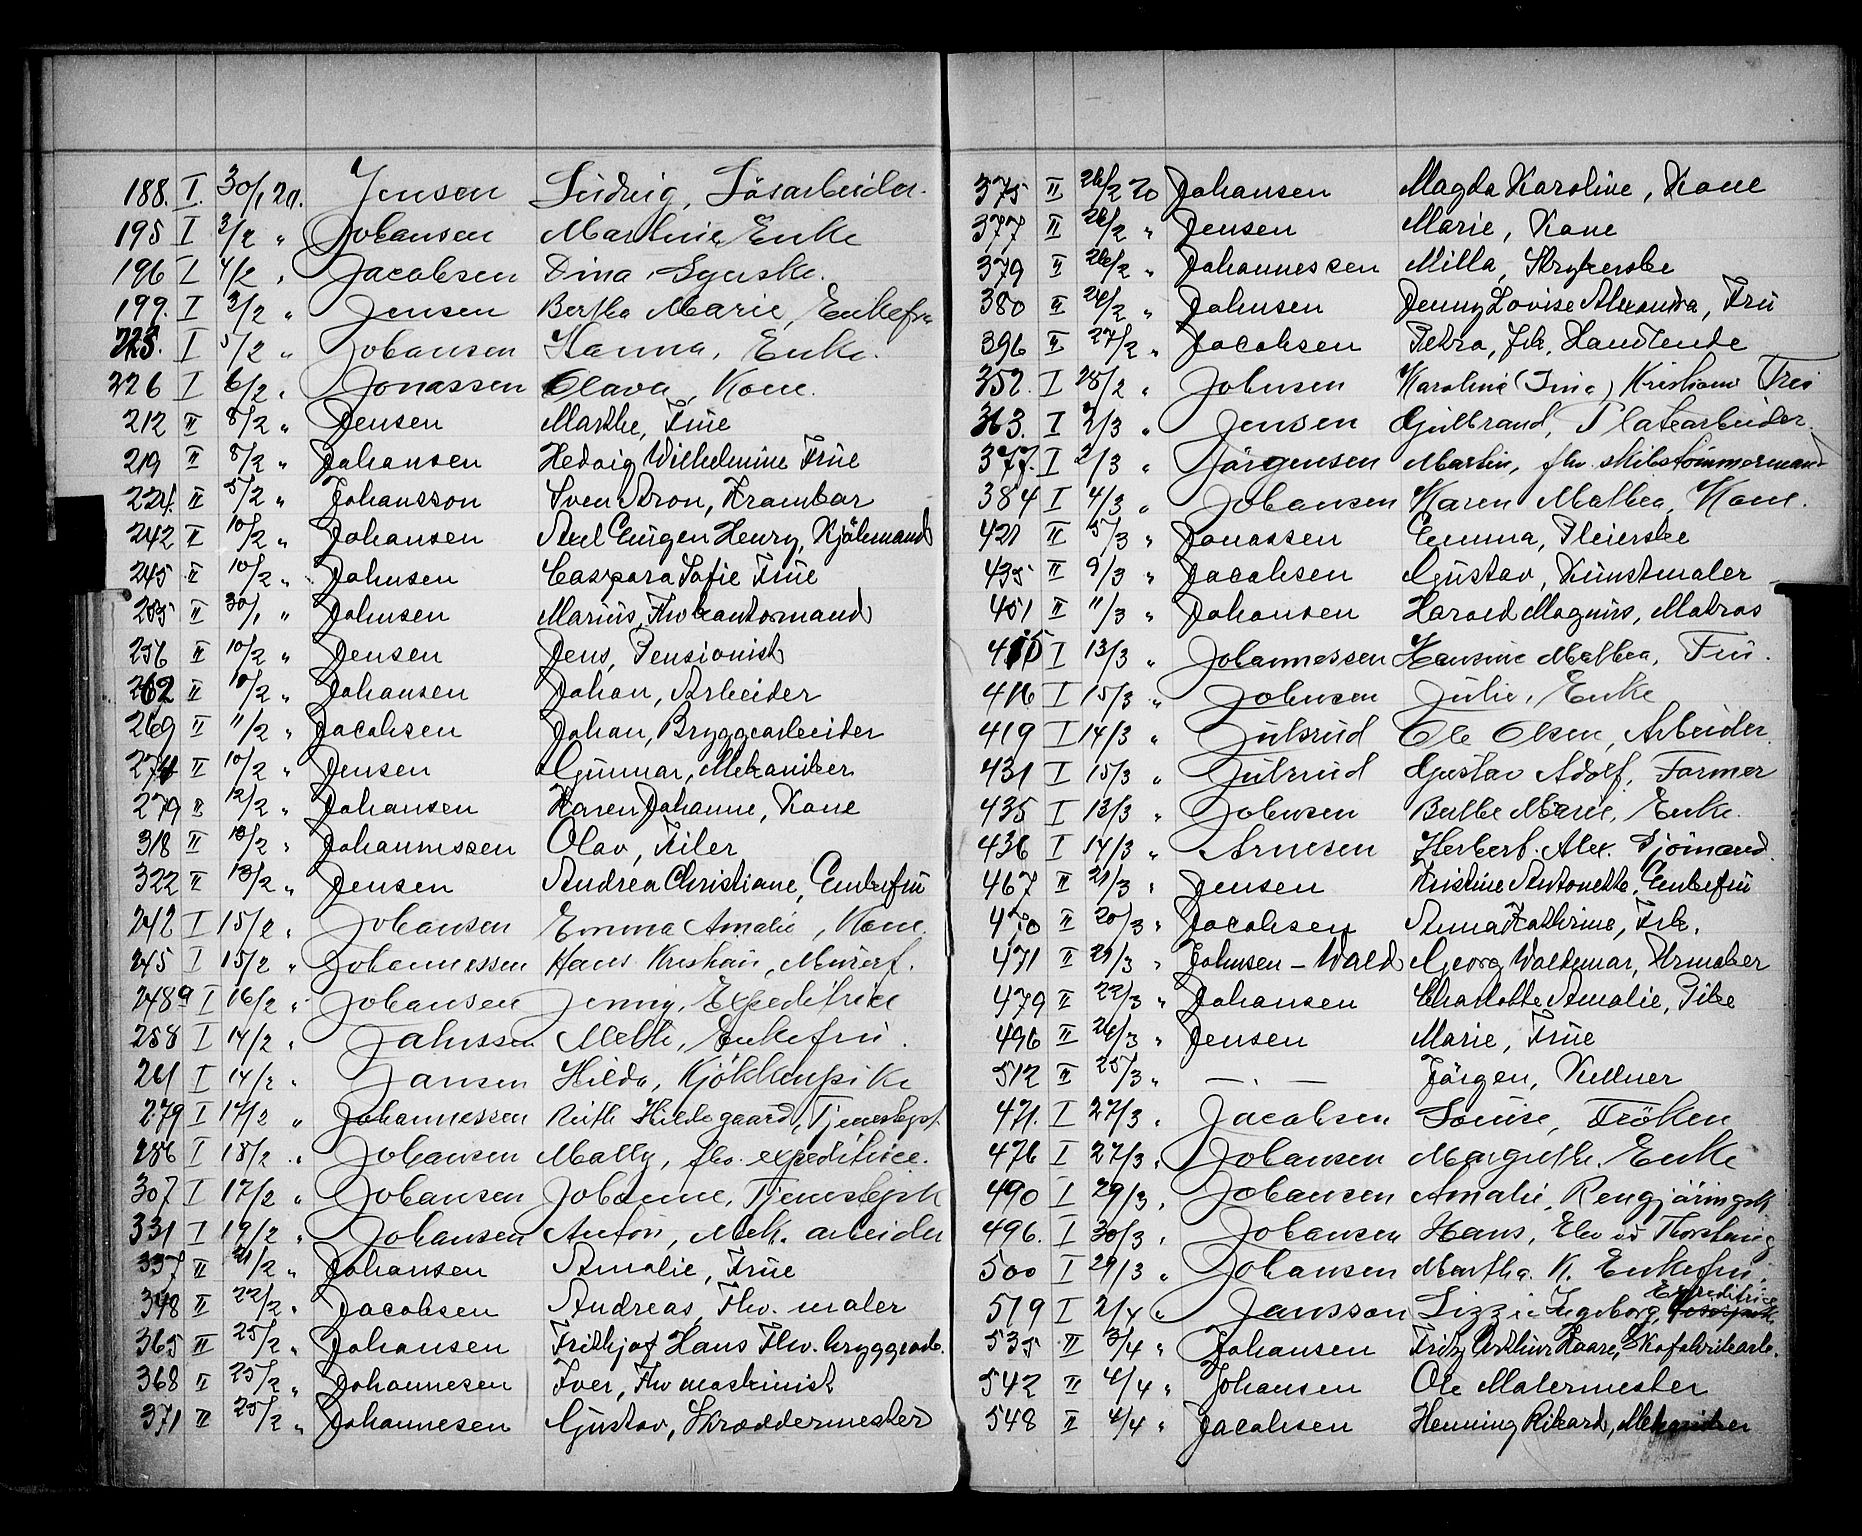 188. I. 30/1 20. Jensen Ludvig, Løsarbeider.
195 I 3/2 " Johansen Martine, Enke
196 I 4/2 " Jacobsen Dina, Syerske.
199. I 3/2 " Jensen Bertha Marie, Enkefru
I 5/2 " Johansen Hanna, Enke.
226 I 6/2 " Jonassen Olava, Kone.
212 II 8/2 " Jensen Marthe, Frue
219 II 8/2 " Johansen Hedvig Wilhelmine Frue
224. II 5/2 " Johansson Sven Aron, Krambar
242 II 10/2 " Johansen Axel Eugen Henry, Kjølemand
245 II 10/2 " Johnsen Caspara Sofie Frue
II 30/1 " Johnsen Marius, Fhv kantormand
256 II 10/2 " Jensen Jens, Pensionist
262 II 10/2 " Johansen Johan, Arbeider
269 II 11/2 " Jacobsen Johan, Bryggearbeider
II 10/2 " Jensen Gunnar, Mekaniker
279 II 12/2 " Johansen Karen Johanne, Kone
318 II 13/2 " Johannessen Olav, Filer
322 II 13/2 " Jensen Andrea Christiane, Enkefru
242 I 15/2 " Johansen Emma Amalie, Kone.
245 I 15/2 " Johannessen Hans Kristian, Murerf.
248a I 16/2 " Johansen Jenny, Expeditrice
258 I 14/2 " Jahnsen Mette, Enkefru.
261 I 14/2 " Jansen Hilda, Kjøkkenpike
279 I 17/2 " Johannessen Ruth Hildegaard, Tjenestepi.
286 I 18/2 " Johansen Mally, fhv. expeditrice.
307 I 17/2 " Johansen Johanne, Tjenestepik
331 I 19/2 " Johansen Anton, Mek. arbeider
337 II 21/2 " Johansen Amalie, Frue
348 II 22/2 " Jacobsen Andreas, Fhv. maler
365 II 25/2 " Johansen Frithjof Hans Fhv. bryggearb.
368 II 25/2 " Johannesen Iver, Fhv maskinist
371 II 25/2 " Johannesen Gustav, Skræddermester
375 II 26/2 20 Johansen Magda Karoline, Kone
377 II 26/2 " Jensen Marie, Kone
379 II 26/2 " Johannessen Milla, Strykerske
380 II 24/2 " Johnsen Jenny Lovise Alexandra, Fru
396 II 27/2 " Jacobsen Petra, Frk. Handlende
352. I 28/2 " Johnsen Karoline (Tina) Kristiane Fru
363. I 2/3 " Jensen Gulbrand, Platearbeider.
377. I 2/3 " Jørgensen Martin, fhv. skibstømmermand
384 I 4/3 " Johansen Karen Mathea, Kone.
421 II 5/3 " Jonassen Emma, Pleierske
435 II 9/3 " Jacobsen Gustav, Kunstmaler
451 II 11/3 " Johansen Harald Magnus, Matros
415 I 13/3 " Johannessen Hansine Mathea, Fru.
416 I 15/3 " Johnsen Julie, Enke
419 I 14/3 " Julsrud Ole Olsen, Arbeider.
431 I 15/3 " Julsrud Gustav Adolf, Farmer
435 I 13/3 " Johnsen Berthe Marie, Enke.
436 I 14/3 " Arnesen Herbert Alex. Sjømand.
467 II 21/3 " Jensen Kristine Antonette, Enkefru
470 II 20/3 " Jacobsen Anna Kathrine, Frk.
471 II 21/3 " Johnsen - Wald Georg Waldemar, Urmaker
479 II 22/3 " Johansen Charlotte Amalie, Pike
496 II 26/3 " Jensen Marie, Frue
512 II 25/3 " — . — Jørgen, Kellner
471. I 27/3 " Jacobsen Louise, Frøken
476 I 27/3 " Johansen Margrethe. Enke
490 I 29/3 " Johansen Amalie, Rengjøringsk
496. I 30/3 " Johansen Hans, Elev
500 I 29/3 " Johansen Martha. K. Enkefru.
519 I 2/4 " Jansson Lizzie Ingeborg, Expeditrice
535 II 3/4 " Johansen Fritz Arthur Kaare, Skofabrikarb.
542 II 4/4 " Johansen Ole Malermester
548 II 4/4 " Jacobsen Henning Rikard, Mekaniker